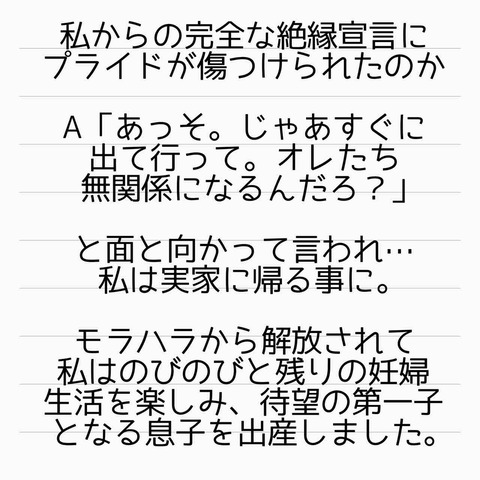 私からの完全な絶縁宣言に
プライドが傷つけられたのか
A「あっそ。じゃあすぐに
出て行って。オレたち
無関係になるんだろ?」
と面と向かって言われ…
私は実家に帰る事に。
モラハラから解放されて
私はのびのびと残りの妊婦
生活を楽しみ、待望の第一子
となる息子を出産しました。